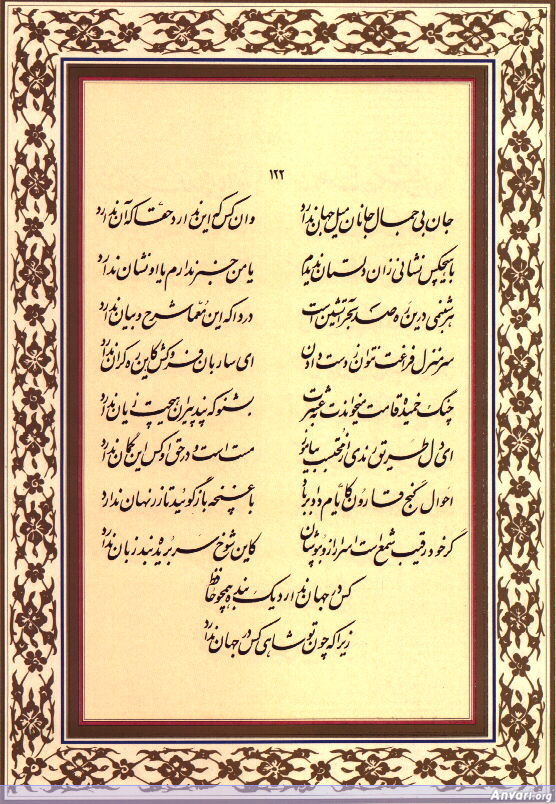 ۱۲۲
جان بی جمال جانان میل جهان ندارد وان کس که این ندارد حقّا که آن ندارد
با هیچکس نشانی زان دلستان ندیدم یا من خبر ندارم یا او نشان ندارد
هر شبنمی درین ره صد بحر آتشین است دردا که این مُعمّا شرح و بیان ندارد
سرمنزل فراغت نتوان ز دست دادن ای ساربان فروکش کاین ره کران ندارد
چنگ خمیده قامت میخواندت بعشرت بشنو که پند پیران هیچت زیان ندارد
ای دل طریق رندی از محتسب بیاموز مست است و در حق او کس این گمان ندارد
احوال گنج قارون کایّام داد بر باد با غنچه بازگوئید تا زر نهان ندارد
گر خود رقیب شمع است اسرار ازو بپوشان کاین شوخ سر بریده بند زبان ندارد
کس در جهان ندارد یک بنده همچو حافظ
زیرا که چون تو شاهی کس در جهان ندارد
Anvari.org